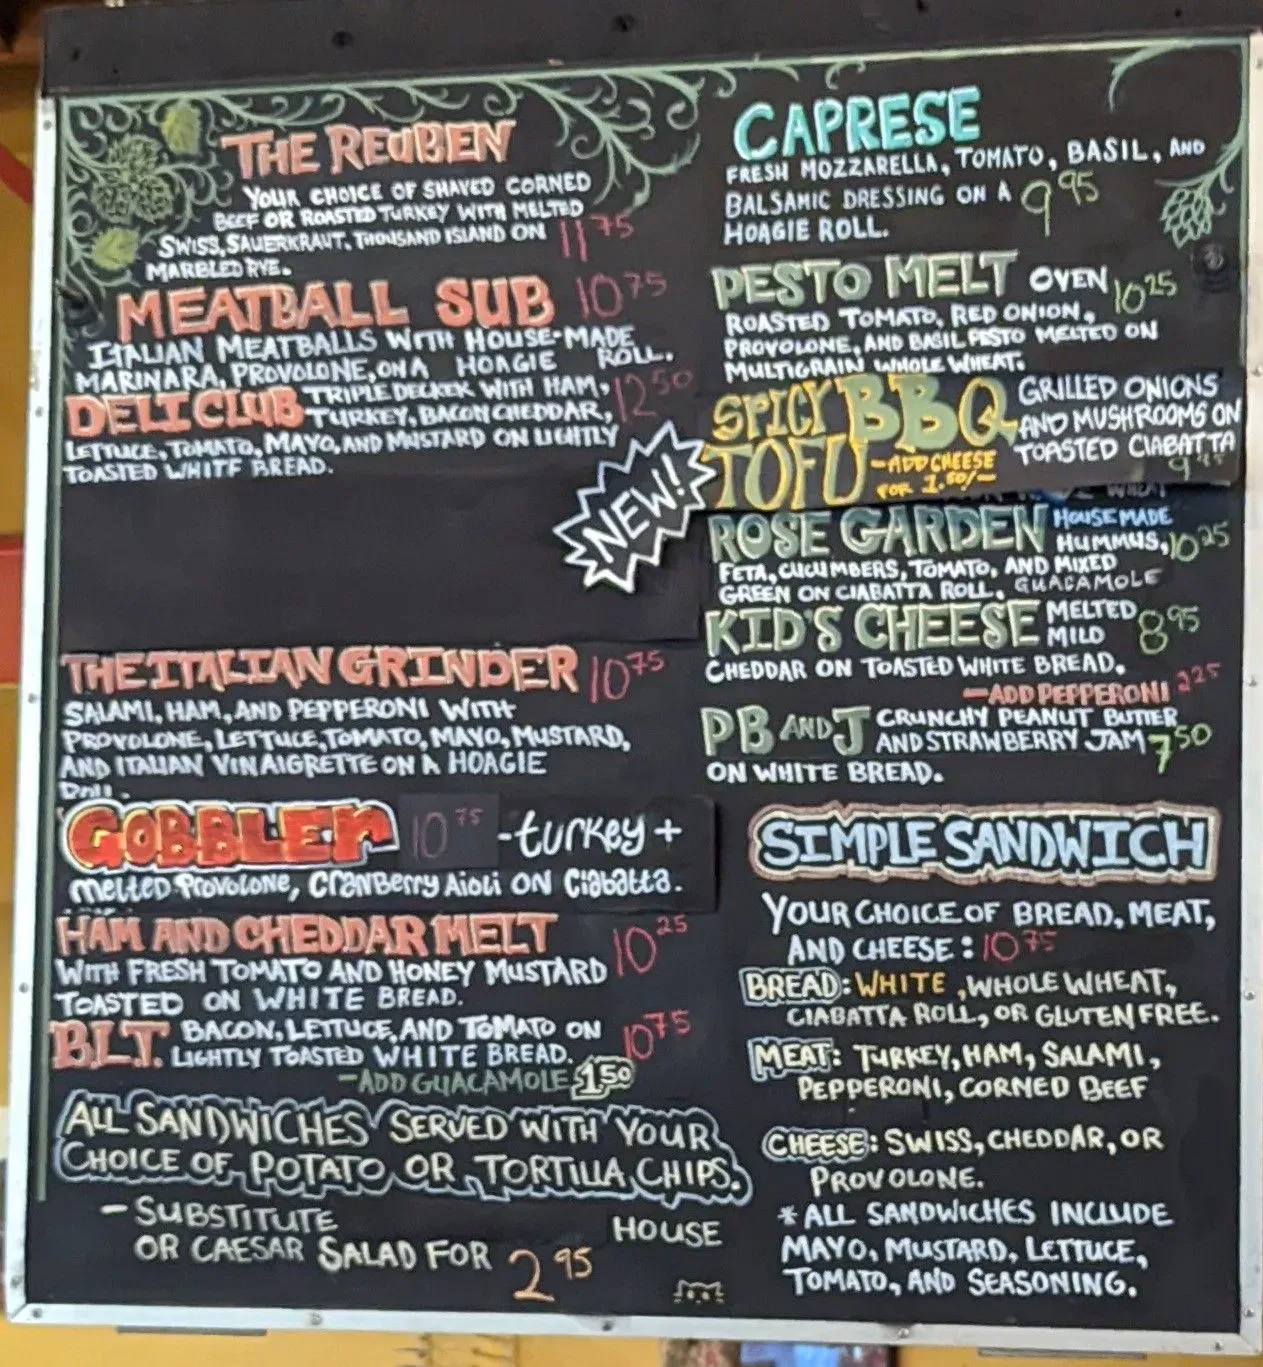 THE REUBEN
YOUR CHOICE OF SHAVED CORNED
BEEF OR ROASTED TURKEY WITH MELTED
SWISS, SAUERKRAUT, THOUSAND ISLAND ON 11 75
MARBLED RYE.
MEATBALL SUB 10 75
ITALIAN MEATBALLS WITH HOUSE-MADE
MARINARA, PROVOLONE, ON A HOAGIE ROLL.
DELI CLUB TRIPLE DECKER WITH HAM, 12 50
TURKEY, BACON CHEDDAR,
LETTUCE, TOMATO, MAYO, AND MUSTARD ON LIGHTLY
TOASTED WHITE BREAD.
THE ITALIAN GRINDER 10 75
SALAMI, HAM, AND PEPPERONI WITH
PROVOLONE, LETTUCE, TOMATO, MAYO, MUSTARD,
AND ITALIAN VINAIGRETTE ON A HOAGIE
GOBBLER 10 75 -turkey +
melted Provolone, Cranberry Aioli on Ciabatta.
HAM AND CHEDDAR MELT 10 25
WITH FRESH TOMATO AND HONEY MUSTARD
TOASTED ON WHITE BREAD.
B.L.T. BACON, LETTUCE, AND TOMATO ON 10 75
LIGHTLY TOASTED WHITE BREAD.
-ADD GUACAMOLE 1.50
ALL SANDWICHES SERVED WITH YOUR
CHOICE OF POTATO OR TORTILLA CHIPS.
- SUBSTITUTE HOUSE
OR CAESAR SALAD FOR 2 95
CAPRESE
FRESH MOZZARELLA, TOMATO, BASIL, AND
BALSAMIC DRESSING ON A 9 95
HOAGIE ROLL.
PESTO MELT OVEN 10 25
ROASTED TOMATO, RED ONION,
PROVOLONE, AND BASIL PESTO MELTED ON
MULTIGRAIN WHOLE WHEAT.
NEW!
SPICY BBQ TOFU GRILLED ONIONS
AND MUSHROOMS ON
TOASTED CIABATTA
-ADD CHEESE
FOR 1.50/-
ROSE GARDEN HOUSE MADE
HUMMUS, 10 25
FETA, CUCUMBERS, TOMATO, AND MIXED
GREEN ON CIABATTA ROLL. GUACAMOLE
KID'S CHEESE MELTED
MILD 8 95
CHEDDAR ON TOASTED WHITE BREAD.
-ADD PEPPERONI 2 25
PB AND J CRUNCHY PEANUT BUTTER
AND STRAWBERRY JAM 7 50
ON WHITE BREAD.
SIMPLE SANDWICH
YOUR CHOICE OF BREAD, MEAT,
AND CHEESE: 10 75
BREAD: WHITE, WHOLE WHEAT,
CIABATTA ROLL, OR GLUTEN FREE.
MEAT: TURKEY, HAM, SALAMI,
PEPPERONI, CORNED BEEF
CHEESE: SWISS, CHEDDAR, OR
PROVOLONE.
*ALL SANDWICHES INCLUDE
MAYO, MUSTARD, LETTUCE,
TOMATO, AND SEASONING.